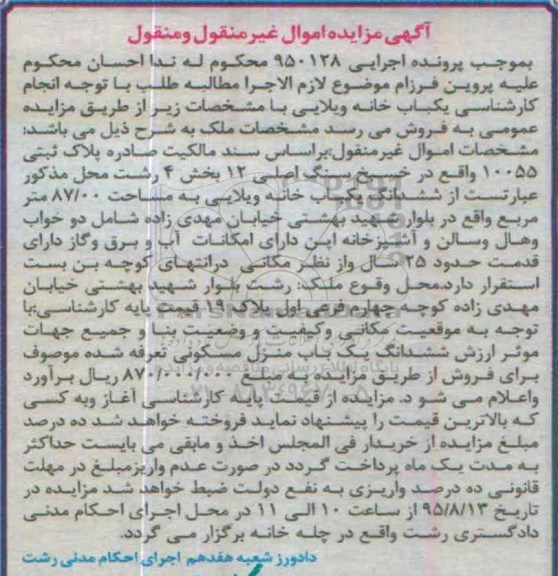 آگهی مزایده اموال غیر منقول و منقول
بموجب پرونده اجرایی ۹۵۰۱۲۸ محکوم له ندا احسان محکوم
علیه پروین فرزام موضوع لازم الاجرا مطالبه طلب با توجه انجام
کارشناسی یکباب خانه ویلایی با مشخصات زیر از طریق مزایده
عمومی به فروش می رسد مشخصات ملک به شرح ذیل می باشد:
مشخصات اموال غیرمنقول:براساس سند مالکیت صادره پلاک ثبتی
۱۰۰۵۵ واقع در خسبخ سنگ اصلی ۱۲ بخش ۴ رشت محل مذکور
عبارتست از ششدانگ یکباب خانه ویلایی به مساحت ۸۷/۰۰ متر
مربع واقع در بلوار شهید بهشتی خیابان مهدی زاده شامل دو خواب
وهال وسالن و آشپزخانه این دارای امکانات آب و برق وگاز دارای
قدمت حدود ۲۵ سال واز نظر مکانی درانتهای کوچه بن بست
استقرار دارد.محل وقوع ملک: رشت بلوار شهید بهشتی خیابان
مهدی زاده کوچه چهارم فرعی اول پلاک ۱۹ قیمت پایه کارشناسی:با
توجه به موقعیت مکانی وکیفیت و وضعیت بنا و جمیع جهات
موثر ارزش ششدانگ یک باب منزل مسکونی تعرفه شده موصوف
برای فروش از طریق مزایده به مبلغ ۸۷۰/۰۰۰/۰۰۰ ریال برآورد
واعلام می شو د. مزایده از قیمت پایه کارشناسی آغاز وبه کسی
که بالاترین قیمت را پیشنهاد نماید فروخته خواهد شد ده درصد
مبلغ مزایده از خریدار فی المجلس اخذ و مابقی می بایست حداکثر
به مدت یک ماه پرداخت گردد در صورت عدم واریزمبلغ در مهلت
قانونی ده درصد واریزی به نفع دولت ضبط خواهد شد مزایده در
تاریخ ۹۵/۸/۱۳ از ساعت ۱۰ الی ۱۱ در محل اجرای احکام مدنی
دادگستری رشت واقع در چله خانه برگزار می گردد.
دادورز شعبه هفدهم اجرای احکام مدنی رشت